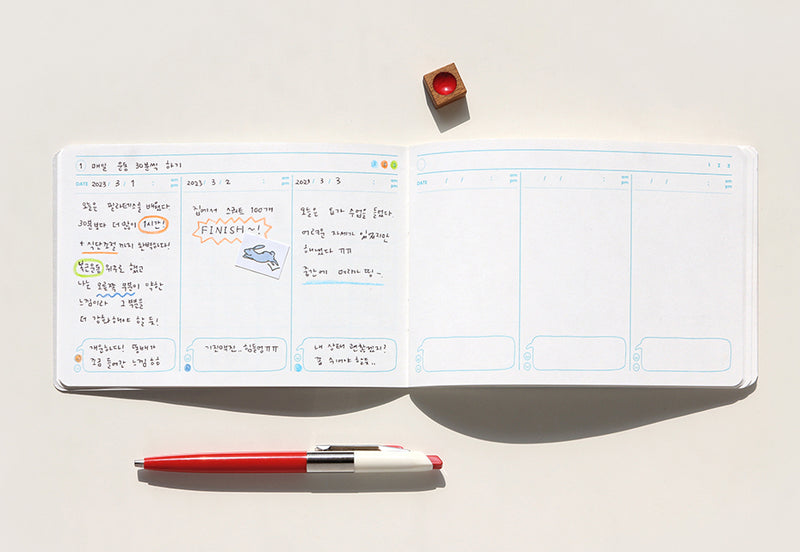 1 매일 운동 30분씩 하기
1 2 3
DATE 2023 / 3 / 1 : am pm
2023 / 3 / 2 : am pm
2023 / 3 / 3 : am pm
오늘은 필라테스를 배웠다.
30분보다 더 많이 1시간!
+ 식단조절 까지 완벽하다!
복근운동 위주로 했고
나는 오른쪽 부분이 약한
느낌이라 그 부분을
더 강화해야 할 듯!
개운하다! 뱃살이
조금 들어간 느낌 ㅎㅎ
집에서 스쿼트 100개
FINISH~!
기진맥진.. 힘들었ㅠㅠ
오늘은 요가 수업을 들었다.
어려운 자세가 있었지만
해냈다 ㅠㅠ
중간에 머리가 띵~
내 상태 괜찮겠지?
좀 쉬어야 할듯..
DATE / / : am pm
/ / : am pm
/ / : am pm